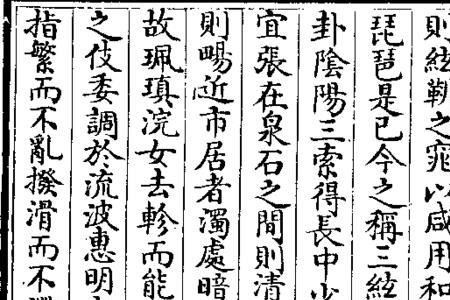 則絃靭之窕以咸用和
琵琶是已今之稱三絃
卦陰陽三索得長中少
宜張在泉石之間則清
則暢近市居者濁處暗
故珮瑱浣女去軫而能
之伎委調於流波惠明
指繁而不亂撥滑而不